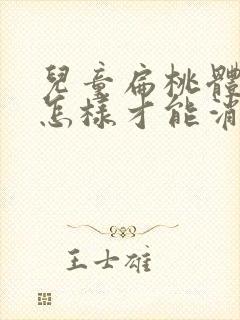 兒童扁桃體
怎樣才能消
王士雄